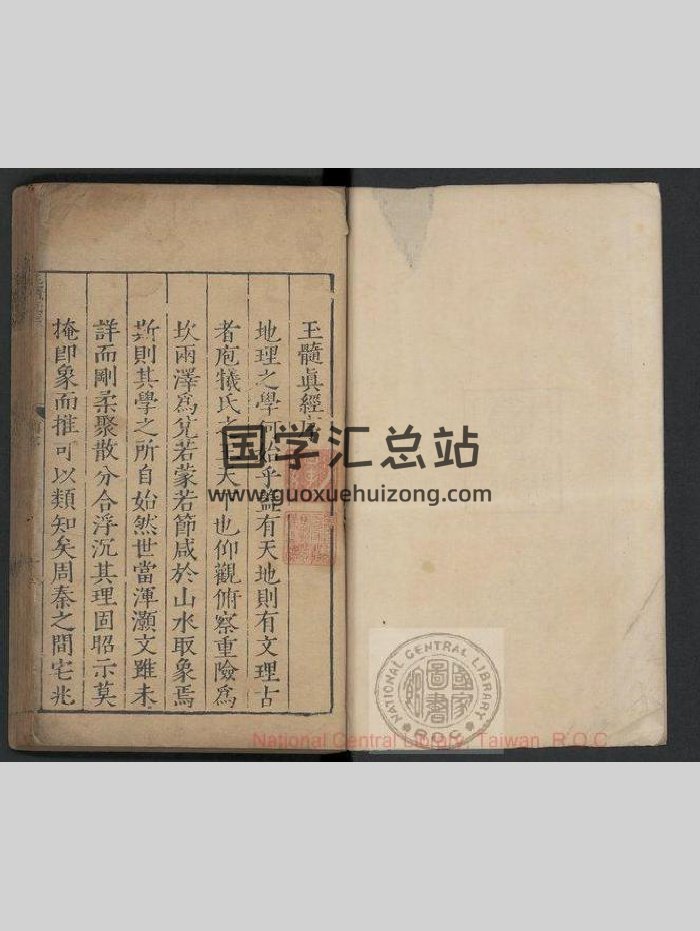 玉髓眞經序
地理之學何始乎蓋有天地則有文理古
者庖犧氏之王天下也仰觀俯察重險為
坎兩澤爲兌若蒙若節咸於山水取象焉
斯則其學之所自始然世當渾灝文雖未
詳而剛柔聚散分合浮沉其理固昭示莫
掩卽象而推可以類知矣周秦之間宅兆
国学汇总站
www.guoxuehuizong.com
NATIONAL CENTRAL LIBRARY
R.O.C
國家圖書館
National Central Library, Taiwan, R.O.C